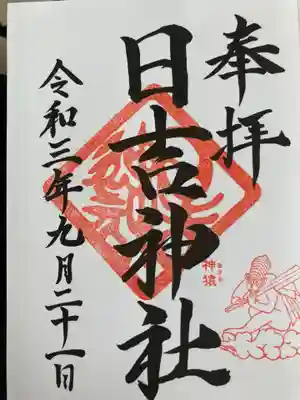 奉拝
日吉神社
令和三年九月二十一日
神猿